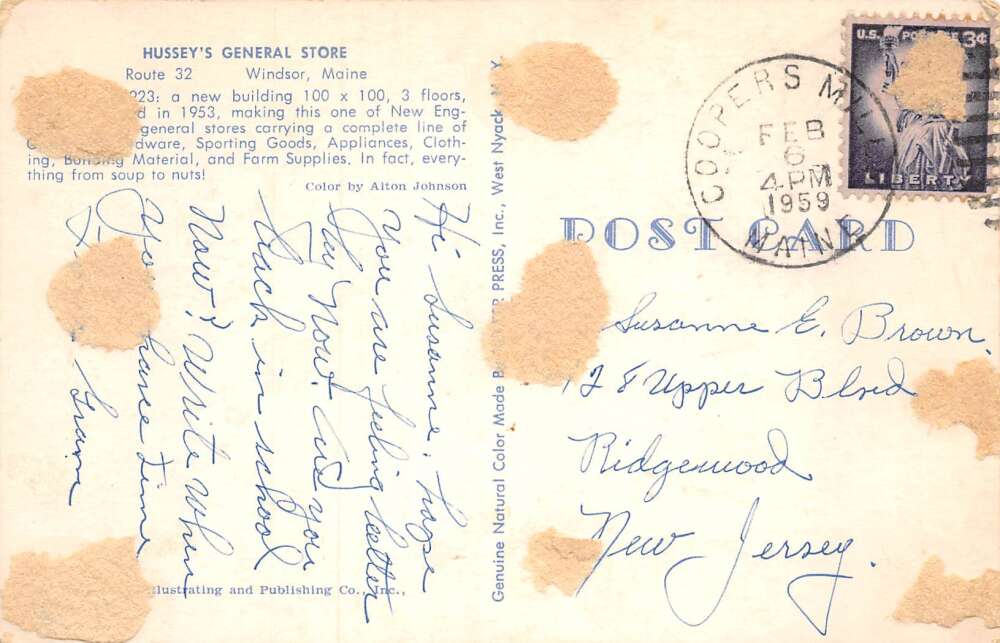 HUSSEY'S GENERAL STORE
Route 32 Windsor, Maine
923: a new building 100 x 100, 3 floors,
d in 1953, making this one of New Eng-
general stores carrying a complete line of
dware, Sporting Goods, Appliances, Cloth-
ing, Building Material, and Farm Supplies. In fact, every-
thing from soup to nuts!
Color by Alton Johnson
Hi Susanne, hope
you are feeling better
by now. Are you
back in school
now? Write when
you have time
Genuine Natural Color Made B PRESS, Inc., West Nyack N. Y.
lustrating and Publishing Co., Inc.,
POST CARD
COOPERS MILLS
FEB
6
4 PM
1959
MAINE
U.S. POSTAGE 3¢
LIBERTY
Susanne E. Brown.
128 Upper Blvd
Ridgewood
New Jersey.